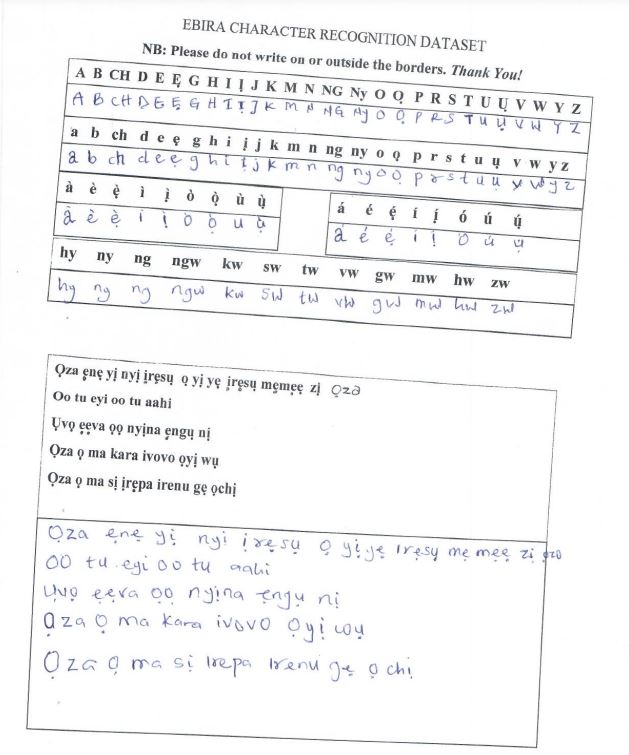 EBIRA CHARACTER RECOGNITION DATASET
NB: Please do not write on or outside the borders. Thank You!
A B CH D E Ẹ G H I Ị J K M N NG Ny O Ọ P R S T U Ụ V W Y Z
A B CH D E Ẹ G H I Ị J K M N NG Ny O Ọ P R S T U Ụ V W Y Z
a b ch d e ẹ g h i ị j k m n ng ny o ọ p r s t u ụ v w y z
a b ch d e ẹ g h i ị j k m n ng ny o ọ p r s t u ụ v w y z
à è ẹ̀ ì ị̀ ò ọ̀ ù ụ̀
à è ẹ̀ ì ị̀ ò ọ̀ u ụ̀
á é ẹ́ í ị́ ó ú ụ́
á é ẹ́ í ị́ ó ú ụ́
hy ny ng ngw kw sw tw vw gw mw hw zw
hy ny ng ngw kw sw tw vw gw mw hw zw
Ọza ẹnẹ yị nyị ịrẹsụ ọ yị yẹ ịrẹsụ mẹmẹẹ zị ọza
Oo tu eyi oo tu aahi
Ụvọ ẹẹva ọọ nyịna ẹngụ nị
Ọza ọ ma kara ivovo ọyị wụ
Ọza ọ ma sị ịrẹpa irenu gẹ ọchị
Ọza ẹnẹ yị nyi ịrẹsụ ọ yị yẹ ịrẹsụ mẹ mẹẹ zị ọza
OO tu eyi oo tu aahi
Ụvọ ẹẹva ọọ nyịna ẹngụ nị
Ọza Ọ ma kara ivovo Ọyị wụ
Ọza Ọ ma sị irepa irenu gẹ ọ chị